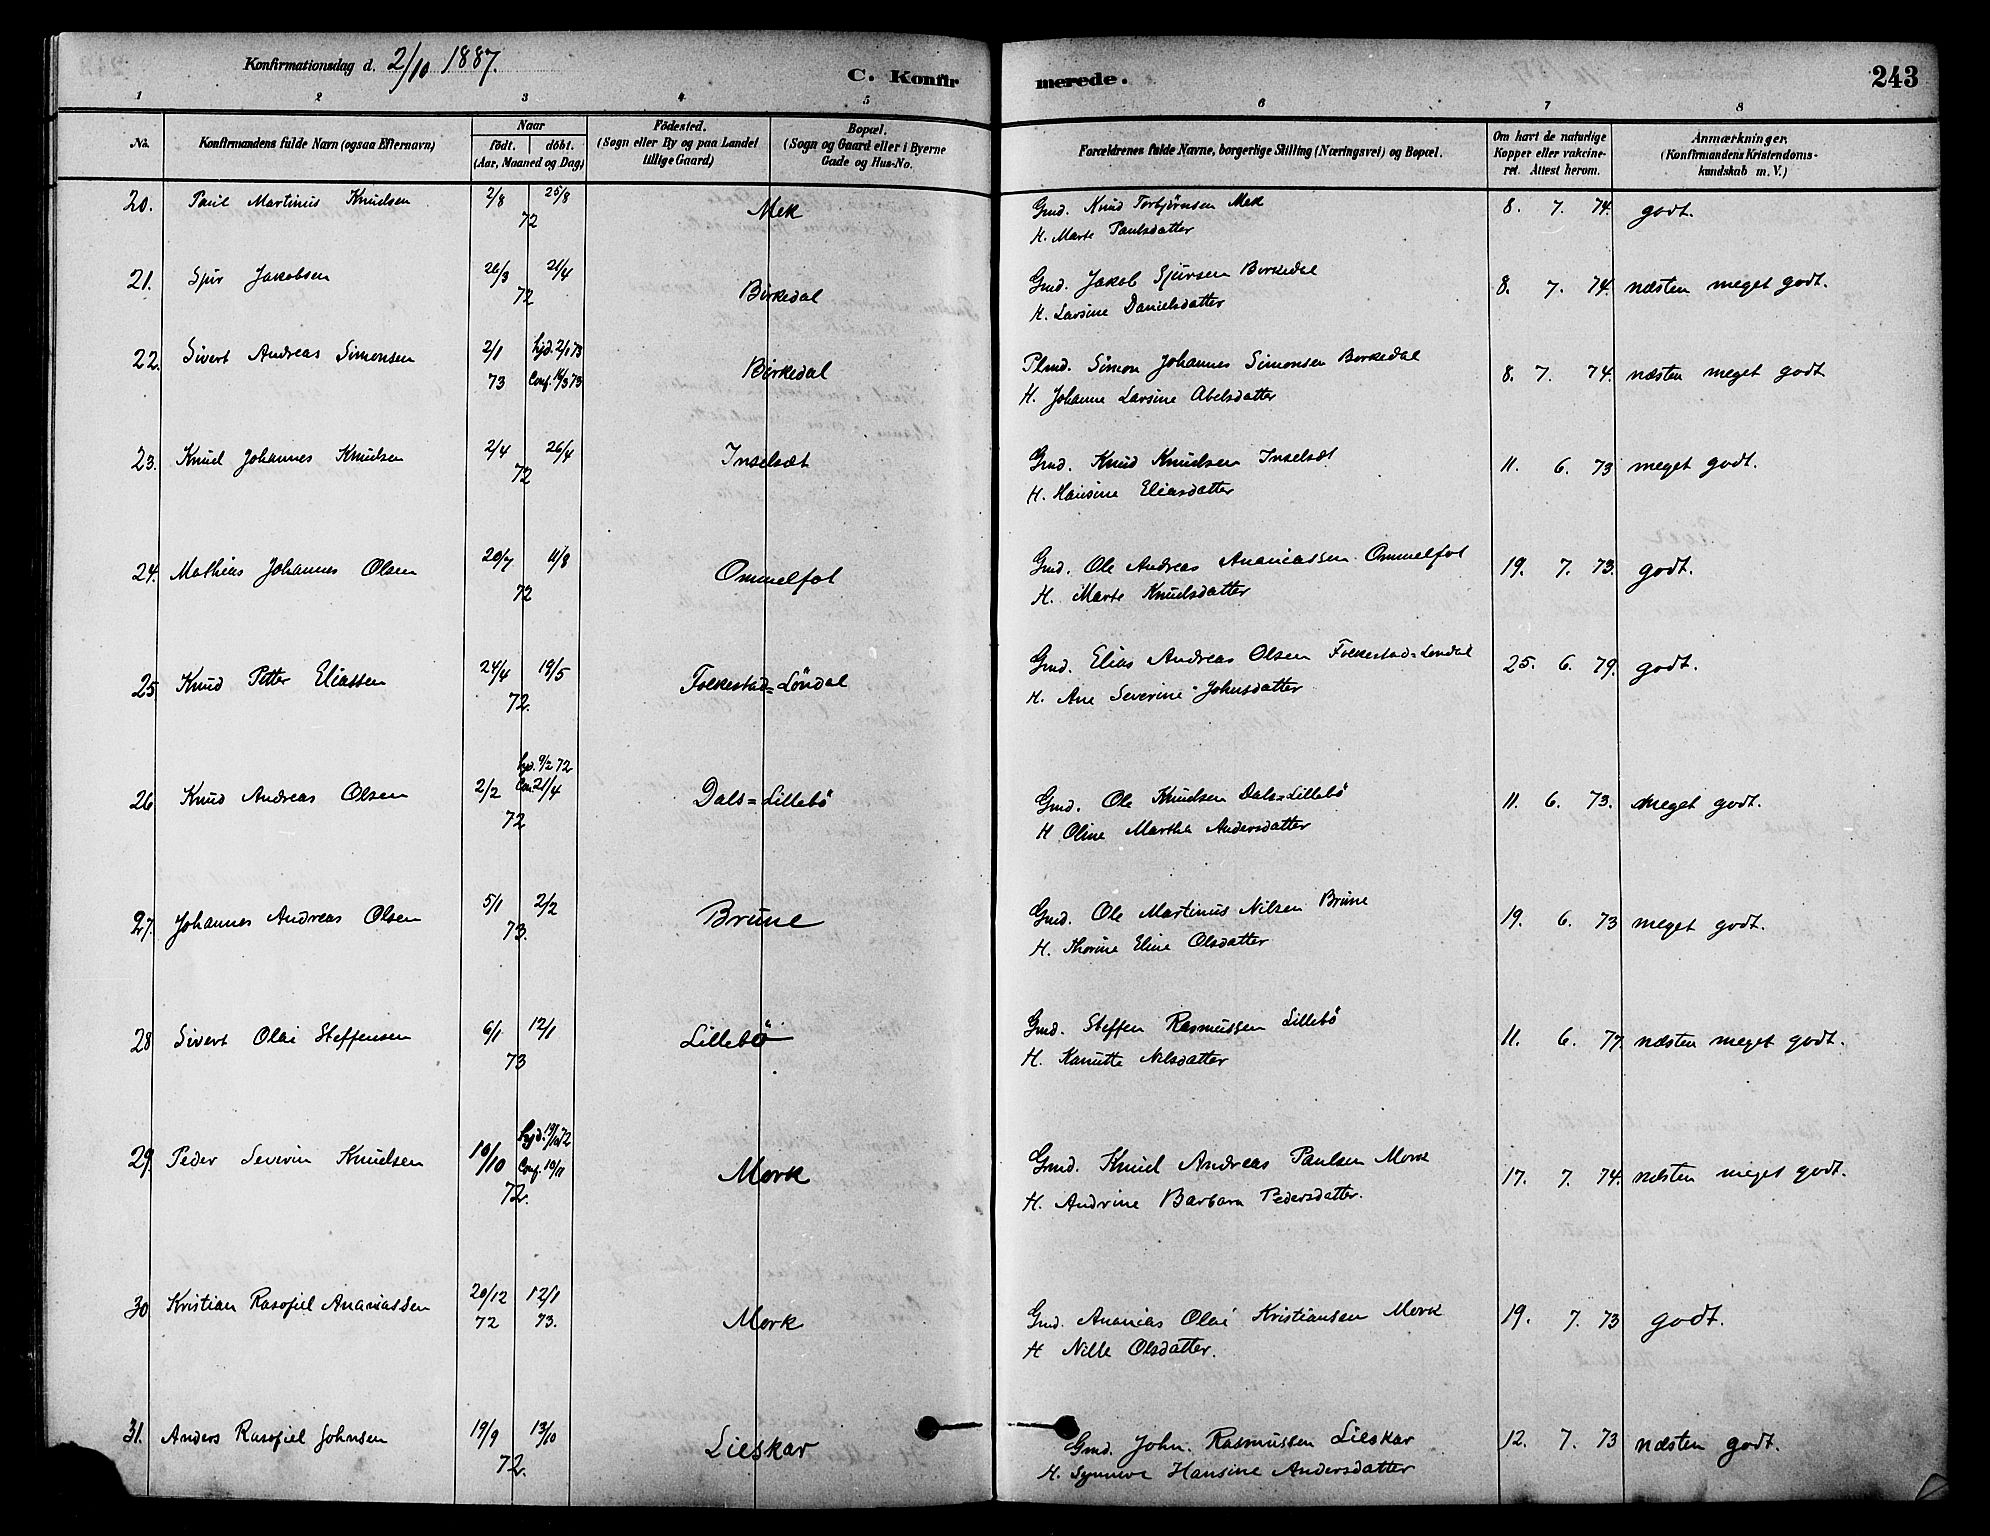 Konfirmationsdag d. 2/10 1887.
C. Konfir
merede.
243
1 2 3 4 5 6 7 8
No.
Konfirmandens fulde Navn (ogsaa Efternavn)
Naar
Födt. döbt.
(Aar, Maaned og Dag)
Födested.
(Sogn eller By og paa Landet
tillige Gaard)
Bopæl.
(Sogn og Gaard eller i Byerne
Gade og Hus-No.
Forældrenes fulde Navne, borgerlige Stilling (Næringsvei) og Bopæl.
Om havt de naturlige
Kopper eller vakcine-
ret. Attest herom.
Anmærkninger.
(Konfirmandens Kristendoms-
kundskab m. V.)
20. Paul Martinus Knudsen 2/8 25/8
72 Mek
Gmd. Knud Torbjørnsen Mek 8. 7. 74. godt.
H. Marte Paulsdatter
21. Sjur Jakobsen 26/3 21/4
72 Birkedal
Gmd. Jakob Sjursen Birkedal 8. 7. 74. næsten meget godt.
H. Larsine Danielsdatter
22. Sivert Andreas Simonsen 2/1 hjd. 2/1 73
73 Conf. 16/3 73 Birkedal
Plmd. Simon Johannes Simonsen Birkedal 8. 7. 74. næsten meget godt
H. Johanne Larsine Abelsdatter
23. Knud Johannes Knudsen 2/4 26/4
72 Inselsæt
Gmd. Knud Knudsen Inselsæt 11. 6. 73 meget godt.
H. Hansine Eliasdatter
24. Mathias Johannes Olsen 20/7 11/8
72 Ommelfot
Gmd. Ole Andreas Ananiassen Ommelfot 19. 7. 73. godt.
H. Marte Knudsdatter
25 Knud Petter Eliassen 24/4 19/5
72. Folkestad=Löndal
Gmd. Elias Andreas Olsen Folkestad=Løndal 25. 6. 79. godt.
H. Ane Severine Johnsdatter
hjd. 9/2 72
26 Knud Andreas Olsen 2/2 Con. 21/4
72 Dals=Lillebö
Gmd. Ole Knudsen Dals=Lillebö 11. 6. 73. meget godt.
H Oline Martha Andersdatter
27. Johannes Andreas Olsen 5/1 2/2
73. Brune
Gmd. Ole Martinus Nilsen Brune 19. 6. 73 meget godt.
H. Thorine Eline Olsdatter
28 Sivert Olai Steffensen 6/1 12/1
73 Lillebö
Gmd. Steffen Rasmussen Lillebö 11. 6. 77. næsten meget godt.
H. Kanutte Nilsdatter
hjd. 19/10 72
29. Peder Severin Knudsen 10/10 Conf. 10/11
72. Mork
Gmd. Knud Andreas Paulsen Mork 17. 7. 74. næsten meget godt.
H. Andrine Barbara Pedersdatter.
30 Kristian Rasofiel Ananiassen 20/12 12/1
72 73. Mork
Gmd. Ananias Olai Kristiansen Mork 19. 7. 73 godt.
H Nille Olsdatter.
31. Anders Rasofiel Johnsen 19/9 13/10
72. Lieskar
Gmd. John. Rasmussen Lieskar 12. 7. 73 næsten godt.
H. Synneve Hansine Andersdatter